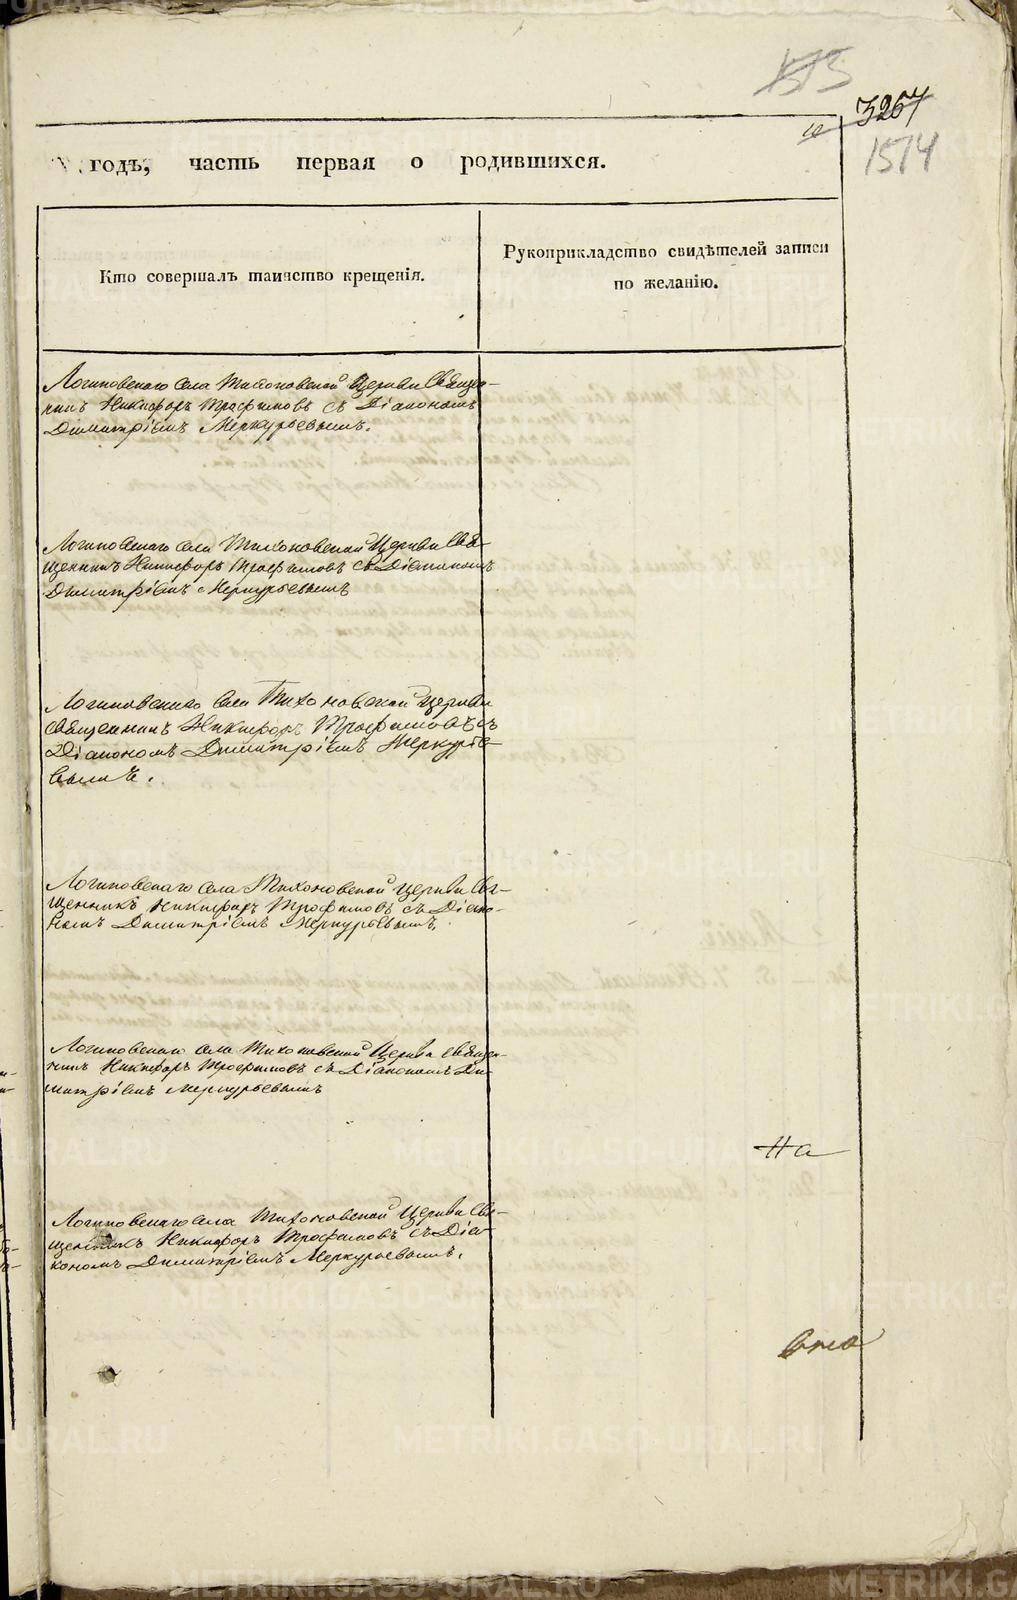 3267
1574
годъ, часть первая о родившихся.
Кто совершалъ таинство крещенія.
Рукоприкладство свидѣтелей записи
по желанію.
Логиновскаго села Тихоновской Церкви Священ-
никъ Никифоръ Трофимовъ съ Діакономъ
Димитріемъ Меркурьевымъ.
Логиновскаго села Тихоновской Церкви Свя-
щенникъ Никифоръ Трофимовъ съ Діакономъ
Димитріемъ Меркурьевымъ
Логиновскаго села Тихоновской Церкви
священникъ Никифоръ Трофимовъ съ
Діакономъ Димитріемъ Меркурье-
вымъ.
Логиновскаго села Тихоновской Церкви Свя-
щенникъ Никифоръ Трофимовъ съ Діако-
номъ Димитріемъ Меркурьевымъ.
Логиновскаго села Тихоновской Церкви священ-
никъ Никифоръ Трофимовъ съ Діакономъ Ди-
митріемъ Меркурьевымъ
На
Логиновскаго села Тихоновской Церкви Свя-
щенникъ Никифоръ Трофимовъ съ Діа-
кономъ Димитріемъ Меркурьевымъ.
METRIKI.GASO-URAL.RU